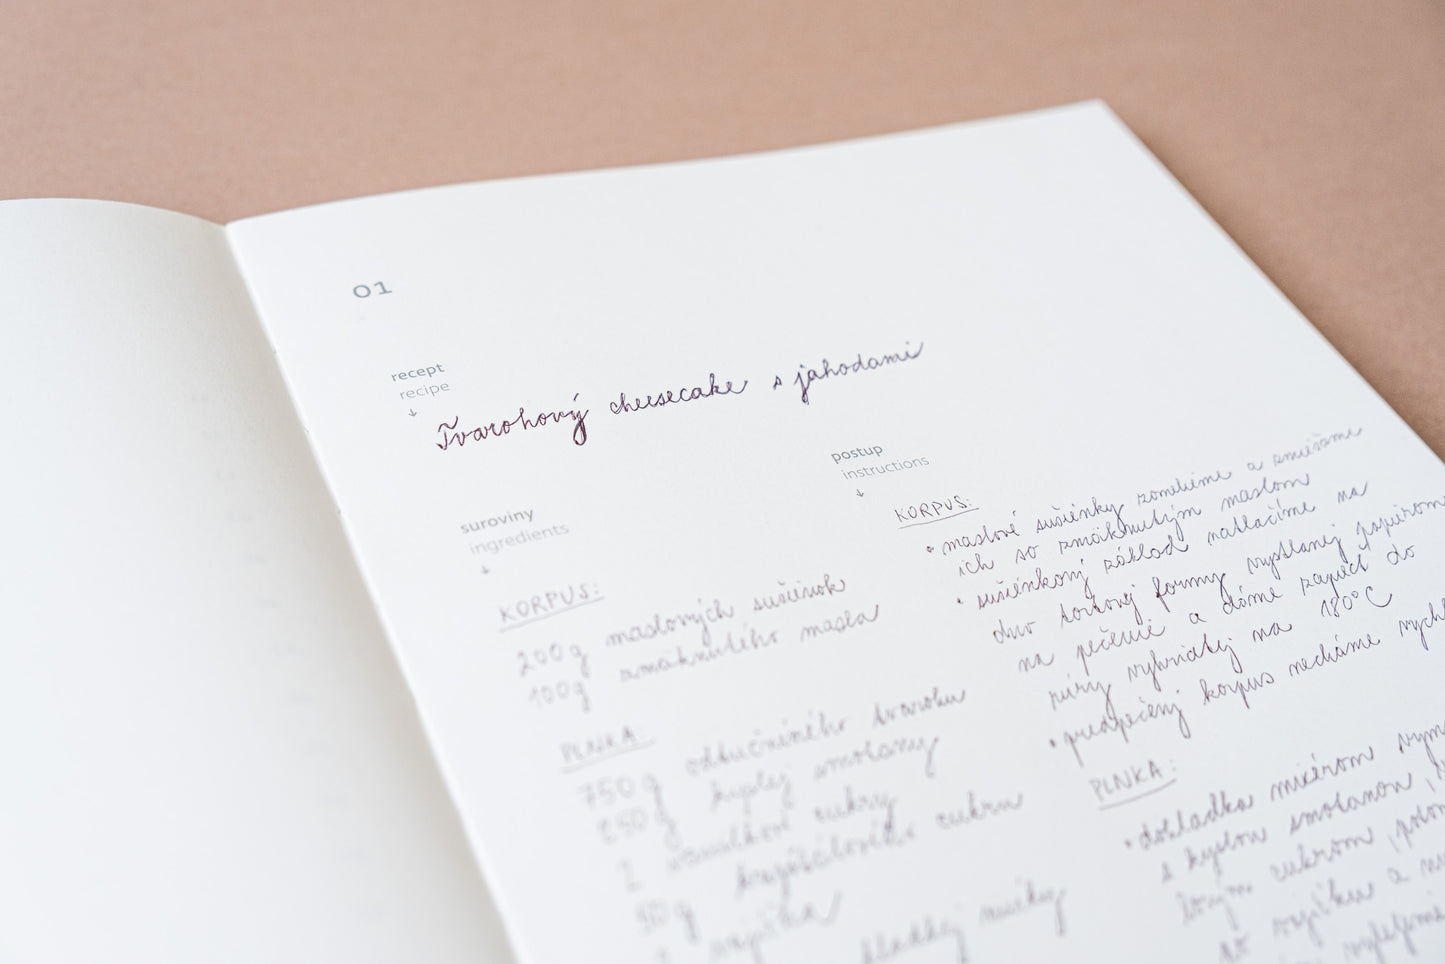 01
recept
recipe
↓
Tvarohový cheesecake s jahodami
suroviny
ingredients
↓
KORPUS:
200g maslových sušienok
100g zmäknutého masla
PLNKA:
750g odtučneného tvarohu
250g kyslej smotany
2 vanilkové cukry
50g kryštálového cukru
vajíčka
hladkej múky
postup
instructions
↓
KORPUS:
• maslové sušienky zomelieme a zmiešame
ich so zmäknutým maslom
• sušienkový základ natlačíme na
dno tortovej formy vystlanej papierom
na pečenie a dáme zapiecť do
rúry vyhriatej na 180°C
• predpečený korpus necháme
PLNKA:
• dohladka mixérom
s kyslou smotanou,
cukrom,
vajíčka a